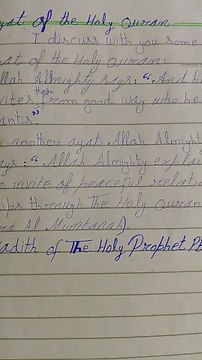 ayat of the Holy Quraan
I discuss with you some
at of the Holy Quraan:
llah Almighty says: "And h
ates them from good way who he
ants."
n another ayat Allah Almight
ays: "Allah Almighty explai
e invite of peaceful relatio
hips through the Holy Quran
Al Mumtanah).
adith of The Holy Prophet P